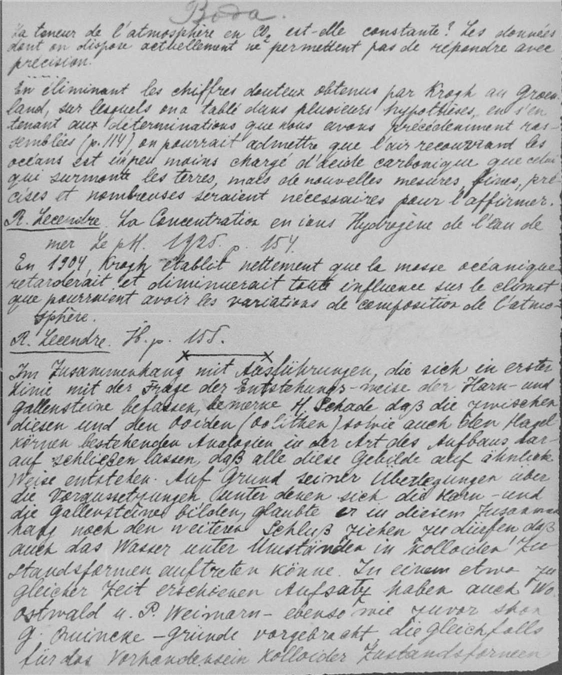 Вода.
La teneur de l'atmosphère en CO₂ est-elle constante? Les données
dont on dispose actuellement ne permettent pas de répondre avec
précision.
En éliminant les chiffres douteux obtenus par Krogh au Groen-
land, sur lesquels on a tablé dans plusieurs hypothèses, en s'en
tenant aux déterminations que nous avons précédemment ras-
semblées (p. 114) on pourrait admettre que l'air recouvrant les
océans est un peu moins chargé d'acide carbonique que celui
qui surmonte les terres, mais de nouvelles mesures fines, pré-
cises et nombreuses seraient nécessaires pour l'affirmer.
R. Legendre. La Concentration en ions Hydrogène de l'eau de
mer Le pH. 1925. p. 154.
En 1904, Krogh établit nettement que la masse océanique
retarderait et diminuerait toute influence sur le climat
que pourraient avoir les variations de composition de l'atmo-
sphère.
R. Legendre. p. 155.
Im Zusammenhang mit Ausführungen, die sich in erster
Linie mit der Frage der Entstehungs-weise der Harn- und
Gallensteine befassen, H. Schade daß die zwischen
diesen und den Ooiden (Oolithen) sowie auch den Hagel
körnern bestehenden Analogien in der Art des Aufbaus dar-
auf schließen lassen, daß alle diese Gebilde auf ähnliche
Weise entstehen. Auf Grund seiner Überlegungen über
die Voraussetzungen unter denen sich die Harn- und
die Gallensteine bilden, glaubte er in diesem Zusammen
hang noch den weiteren Schluß ziehen zu dürfen daß
auch das Wasser unter Umständen in kolloiden Zu-
standsformen auftreten könne. In einem etwa zu
gleicher Zeit erschienen Aufsatz haben auch Wo.
Ostwald u. P. Weimarn - ebenso wie zuvor schon
G. Quincke - Gründe vorgebracht, die gleichfalls
für das Vorhandensein kolloider Zustandsformen